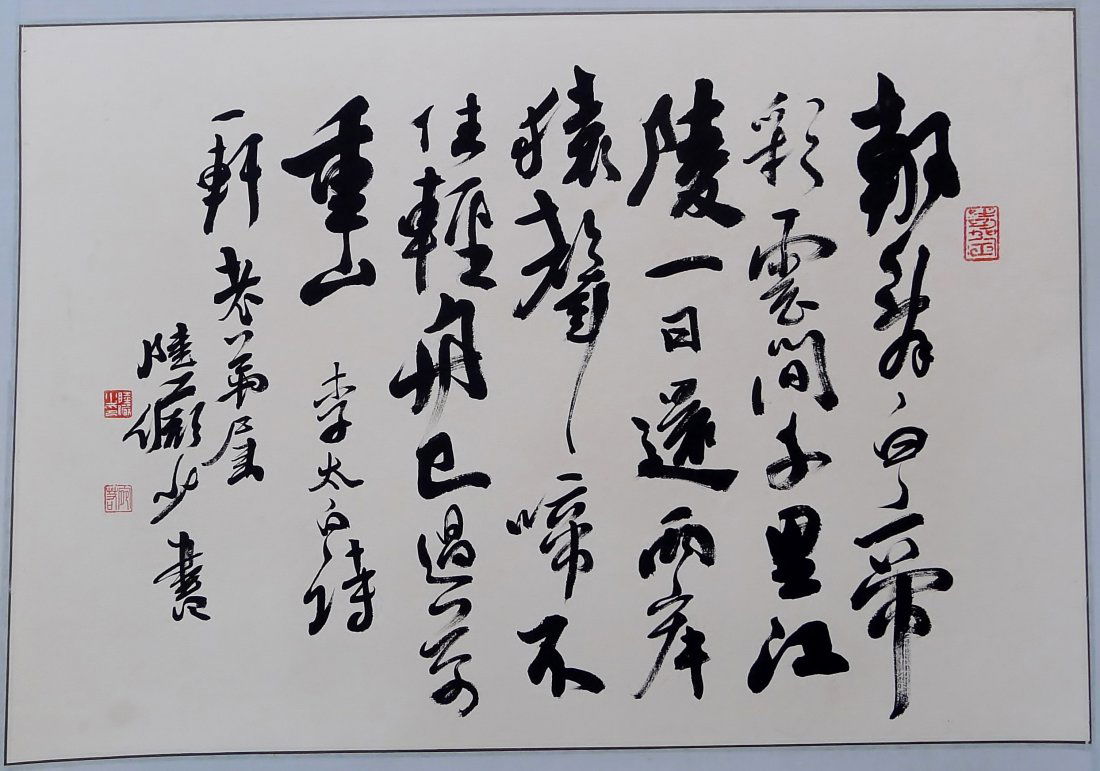 朝辭白帝
彩雲間千里江
陵一日還兩岸
猿聲啼不
住輕舟已過萬
重山 李太白詩
一軒老弟屬
陸儼少書